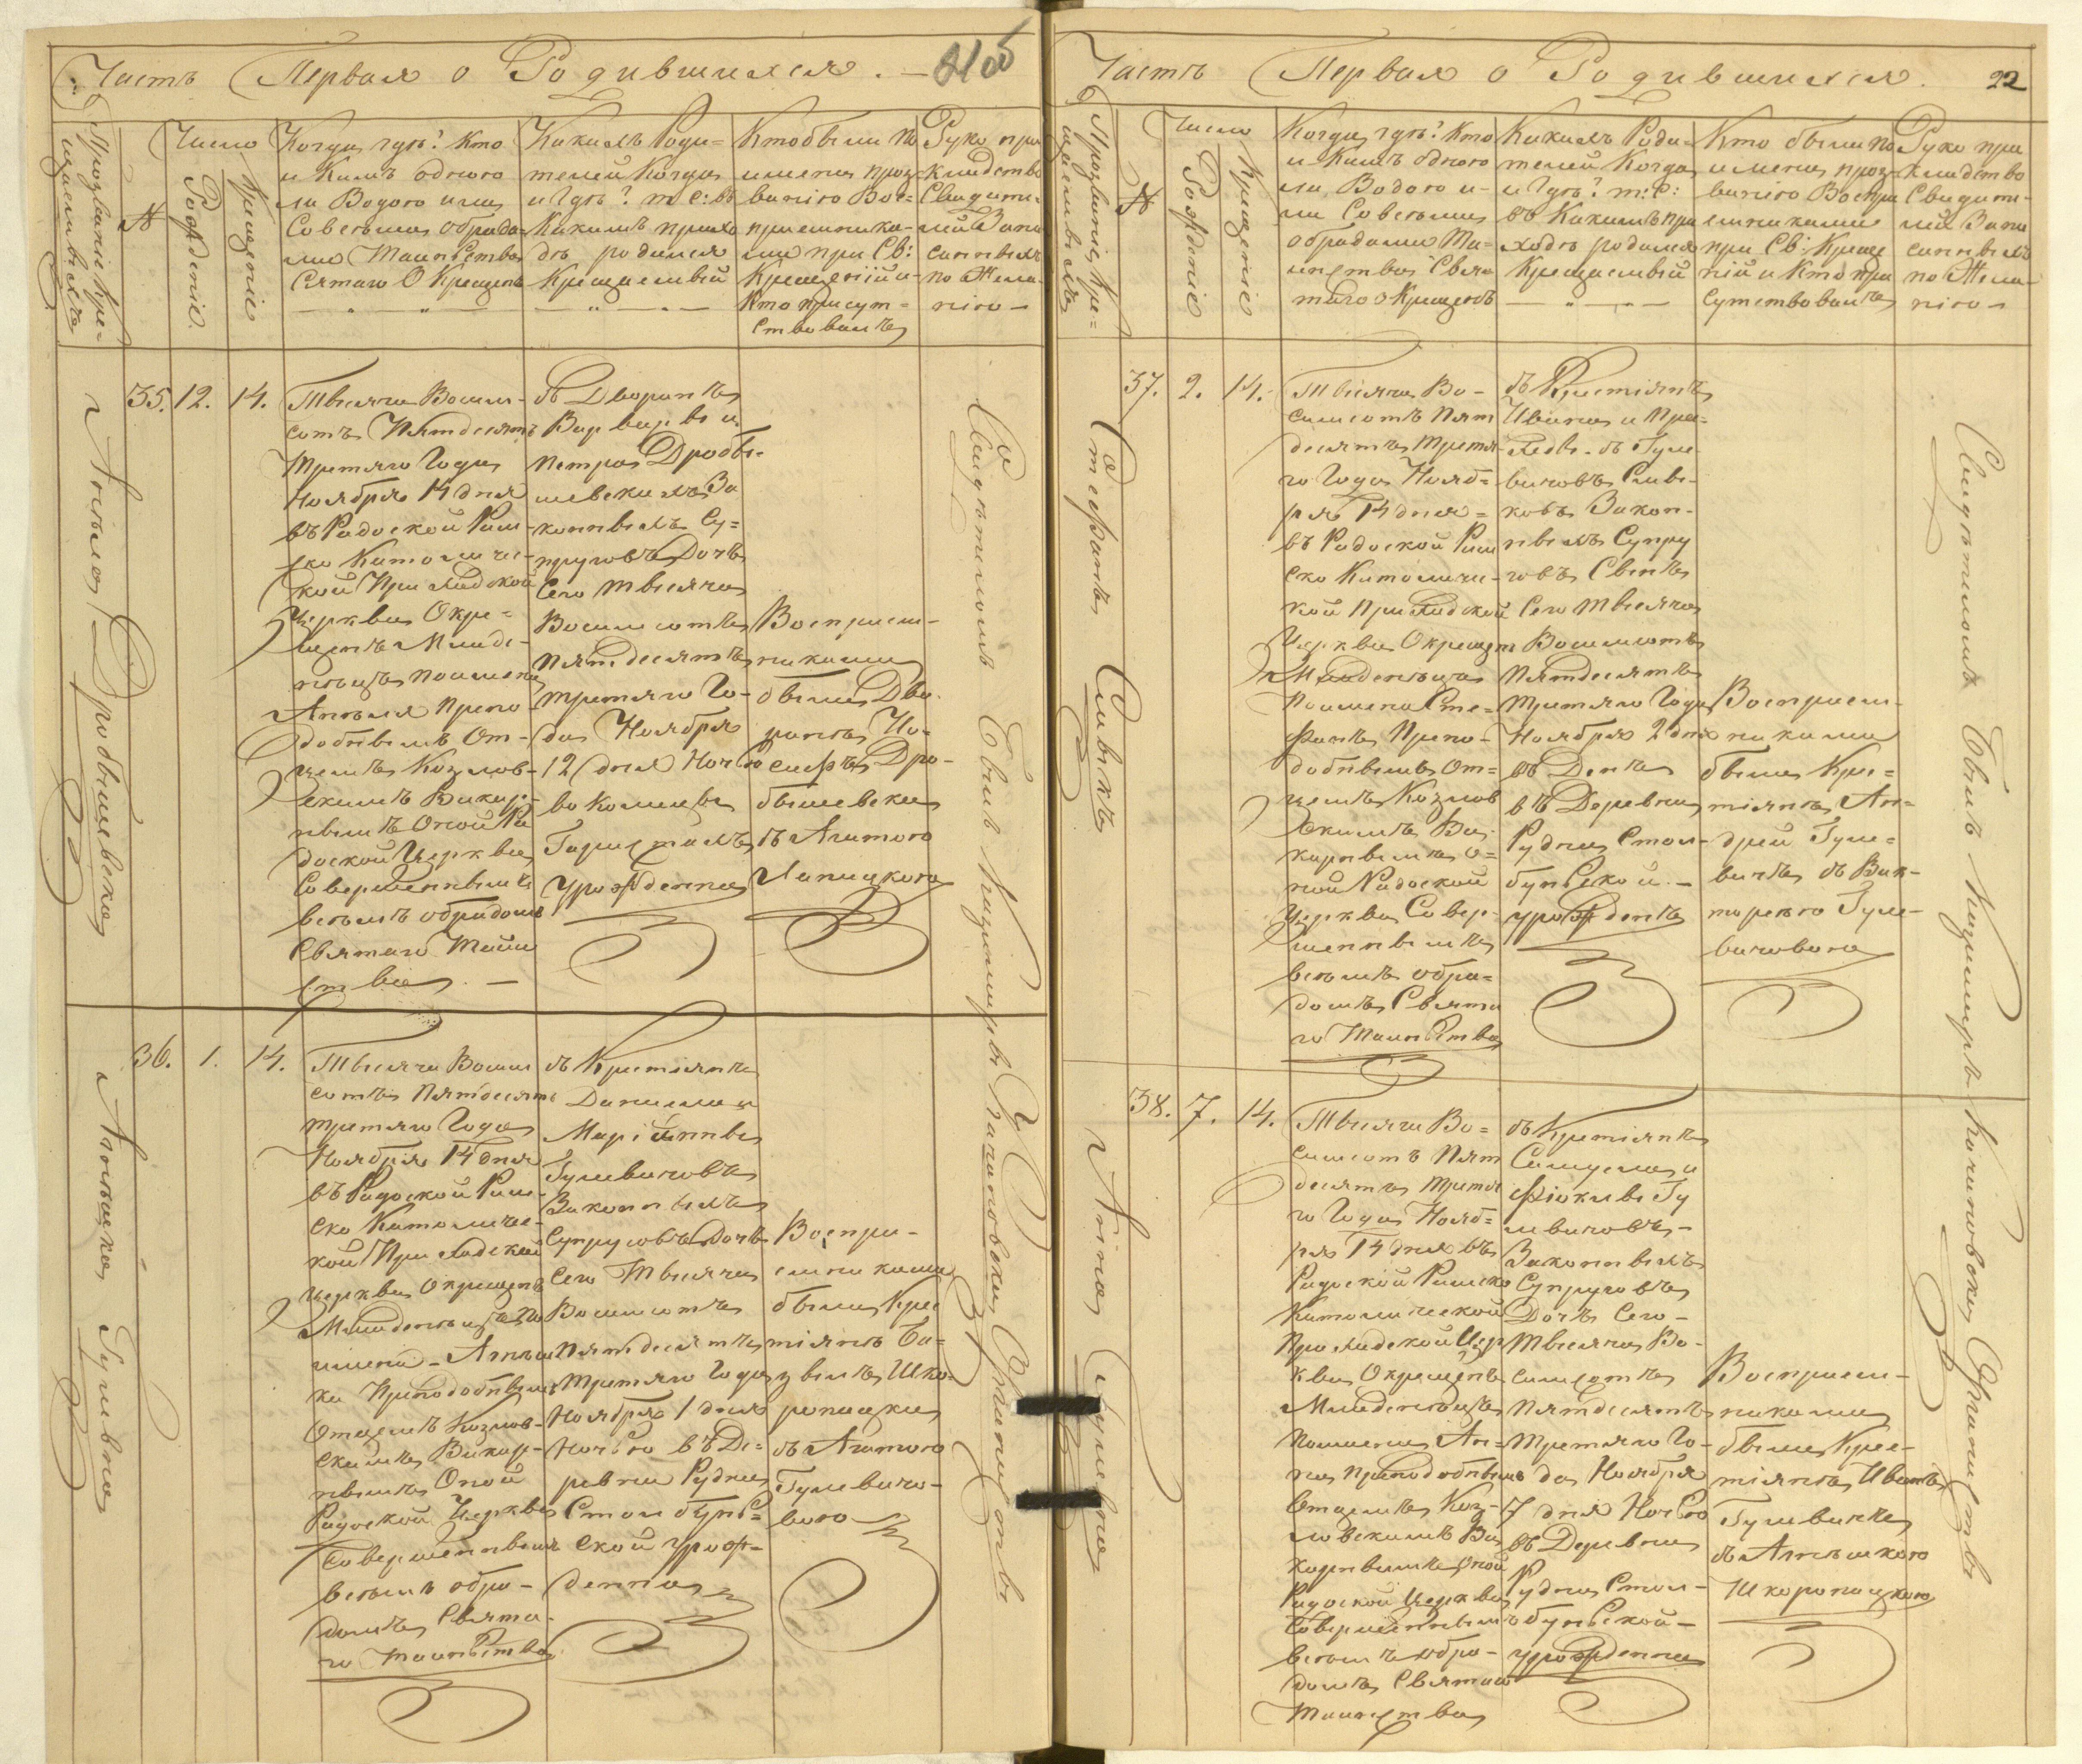 Часть Первая о Родившихся. — 21об
Прозваніе Кре=
щаемыхъ
№
Число
Рожденіе.
Крещеніе
Когда, гдѣ? Кто
и Кѣмъ одною
ли Водою или
Совсѣми обряда
ми Таинства
Сятаго Окрещенъ
Какихъ Роди=
телей Когда
и Гдѣ? т: е: въ
Какимъ прихо
дѣ родился
Крещаемый
Кто были по
имени проз
ванію Вос=
приемника=
ми при Св:
Крещеніи и
Кто присут=
ствовалъ
Руко при
кладство
Свидѣте=
лей Запи
санныхъ
по Жела=
нію —
Анѣля Дробышевска
35. 12. 14.
Тысяча Восем=
сотъ Пятдесятъ
Третяго Года
Ноября 14 дня
въ Радоской Рим=
ско Католичес=
кой При людской
Церкви Окре=
щенъ Младе=
нецъ поимени
Анѣля Препо=
добнымъ От=
цемъ Козлов=
скимъ Викар=
нымъ Оной Ра
доской Церкви
Совершеннымъ
всѣмъ обрядомъ
Святаго Таин
ства. —
съ Дворянъ
Варвары и
Петра Дробы=
шевскихъ За
конныхъ Су=
пруговъ Дочь
Сего тысяча
Восемсотъ
Пятдесятъ
третяго Го=
да Ноября
12 дня Ночью
во Колицы
урожденна
Восприем=
никами
были Дво=
рянъ Іо=
сифъ Дро=
бышевски
съ Агатою
Лапицкою
36. 1. 14.
Тысяча Восем
сотъ Пятдесятъ
третяго Года
Ноября 14 дня
въ Радоской Рим=
ско Католичес=
кой При людской
церкви Окрещенъ
Младенецъ по
имени — Агнѣш
ка Преподобнымъ
Отцемъ Козлов=
скимъ Викар=
нымъ Оной
Радоской Церкви
Совершеннымъ
всѣмъ обря=
домъ Свята=
го Таинства
съ Кретіянъ
Даниела и
Маріянны
Гулевичовъ
Законныхъ
Супруговъ Дочь
Сего Тысяча
Восемсотъ
Пятдесятъ
Третяго Года
Ноября 1 дня
Ночью въ Де=
ревни Рудни
Столбунс=
ской урож=
денна
Воспри=
емниками
были Кре
тіянъ Ба=
зылъ Шко=
ропацки
съ Агатою
Гулевичо=
вою
Свидѣтелемъ былъ Казимиръ Качановски Органиста
Часть Первая о Родившихся. 22
Прозваніе Кре=
щаемыхъ
№
Число
Рожденіе
Крещеніе
Когда, гдѣ? Кто
и Кѣмъ одною
ли Водою и=
ли Совсѣми
обрядами Та=
инства Свя
таго Окрещенъ
Какихъ Роди=
телей Когда
и Гдѣ? т: е:
въ Какимъ при
ходѣ родился
Крещаемый
Кто были по
имени проз
ванію Воспри
емниками
при Св: Креще
ній и Кто при
сутствовалъ
Руко при
кладство
Свидѣте=
лей Запи
санныхъ
по Жела=
нію —
Стефанъ Сивкъ
37. 2. 14.
Тысяча Во=
семсотъ Пят
десятъ третя
го Года Нояб=
ря 14 дня =
въ Радоской Рим
ско Католичес=
кой При людской
Церкви Окрещен
Младенецъ
Поимени Сте=
фанъ Препо=
добнымъ От=
цемъ Козлов
скимъ Ви=
карнымъ О=
ной Радоской
Церкви Совер=
шеннымъ
всѣмъ обря=
домъ Свята
го Таинства
съ Кретіянъ
Ивана и
Гуле=
вичовъ Сивы=
ковъ Закон=
ныхъ Супру
говъ Сынъ
Сего Тысяча
Восемсотъ
Пятдесятъ
Третяго Года
Ноября 2 дня
въ Денъ
въ Деревни
Рудни Стол=
бунской. —
урожденъ
Восприем=
никами
были Кре=
тіянъ Ан=
дрей Гуле=
вичъ съ Вик=
торіею Гуле=
вичовою
38. 7. 14.
Тысяча Во=
семсотъ Пят
десятъ третя
го Года Нояб=
ря 14 дня въ
Радоской Римско
Католической
При людской Цер
кви Окрещенъ
Младенецъ
Поимени Ан=
на Преподобнымъ
Отцемъ Коз=
ловскимъ Ви
карнымъ Оной
Радоской Церкви
Совершеннымъ
всѣмъ обря=
домъ Святаго
Таинства
съ Кретіянъ
Самуела и
Фіоклы Гу
левичовъ —
Законныхъ
Супруговъ
Дочь Сего —
Тысяча Во=
семсотъ
Пятдесятъ
Третяго Го=
да Ноября
7 дня Ночью
въ Деревни
Рудни Стол=
бунской —
урожденна
Восприем=
никами
были Кре=
тіянъ Иванъ
Гулевичъ
съ Агнѣшкою
Шкоропацкою
Свидѣтелемъ былъ Казимиръ Качановски Органиста